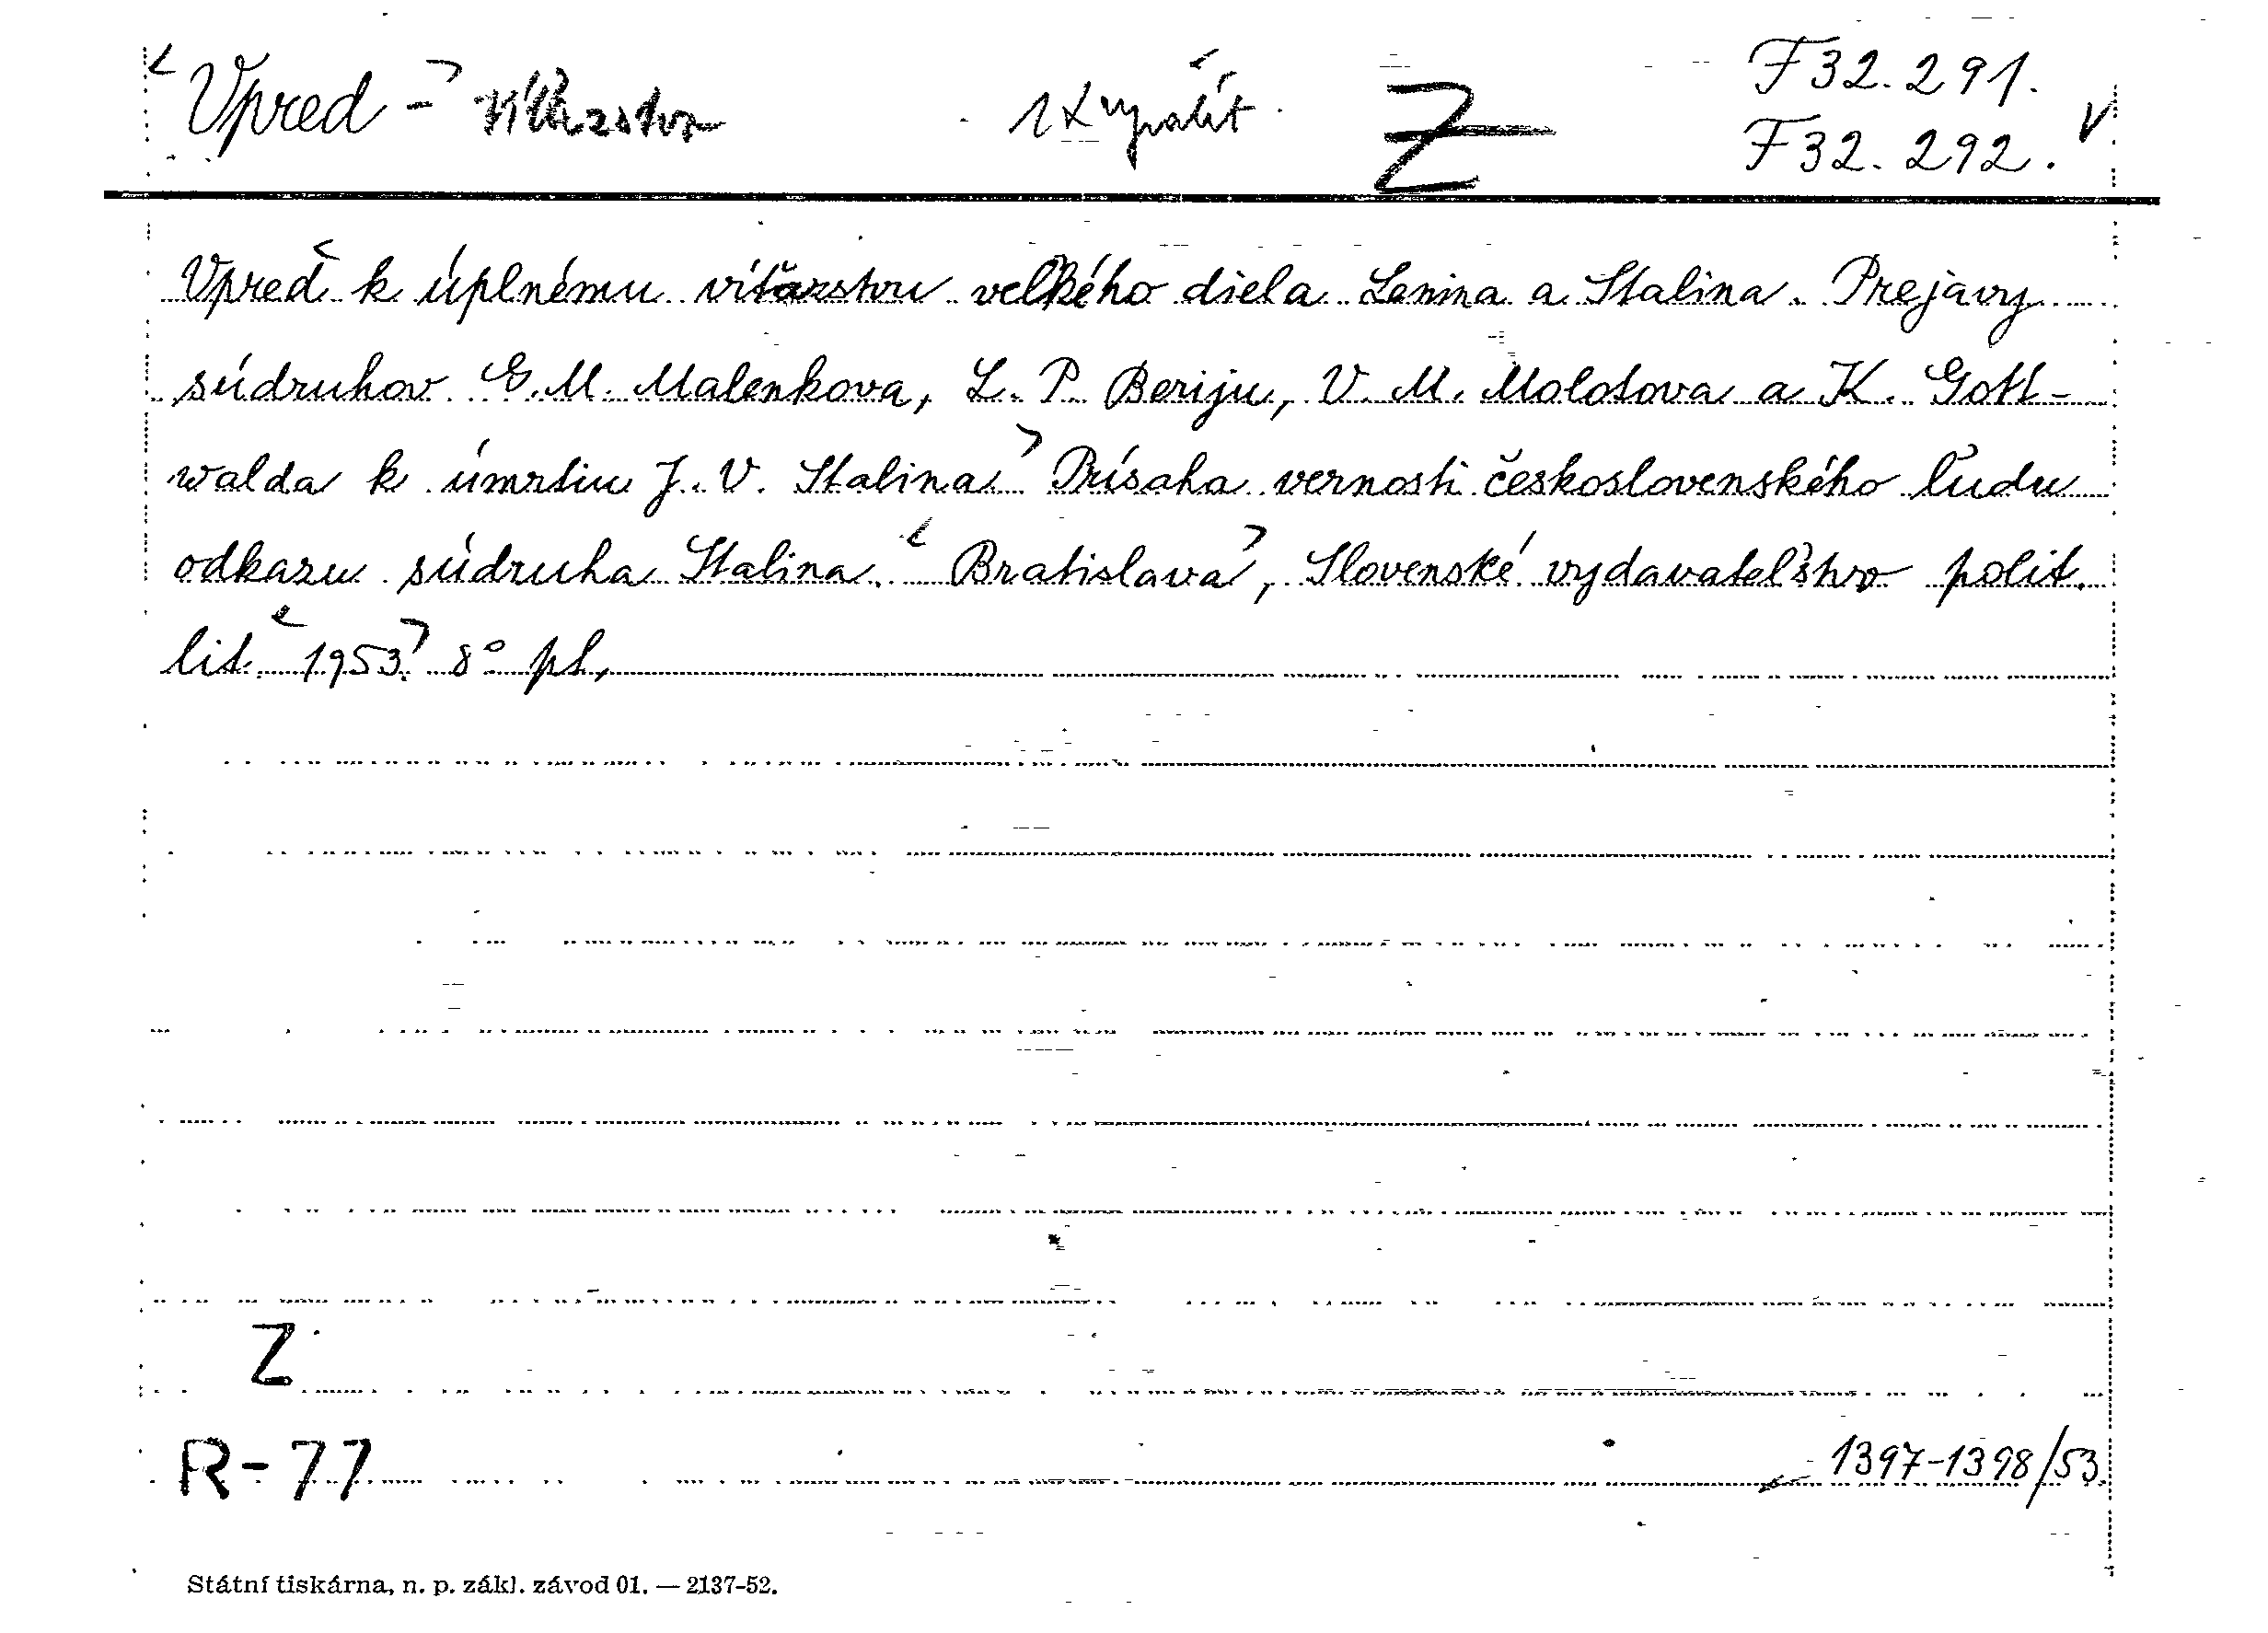 Vpred - víťazstvu 1x vyřadit Z F 32.291.
F 32.292. V
Vpreď k úplnému víťazstvu veľkého diela Lenina a Stalina. Prejavy
súdruhov G. M. Malenkova, L. P. Beriju, V. M. Molotova a K. Gott-
walda k úmrtiu J. V. Stalina. Prísaha vernosti československého ľudu
odkazu súdruha Stalina. Bratislava, Slovenské vydavateľstvo polit.
lit. 1953. 8° pl.
Z
R-77 1397-1398/53.
Státní tiskárna, n. p. zákl. závod 01. — 2137-52.